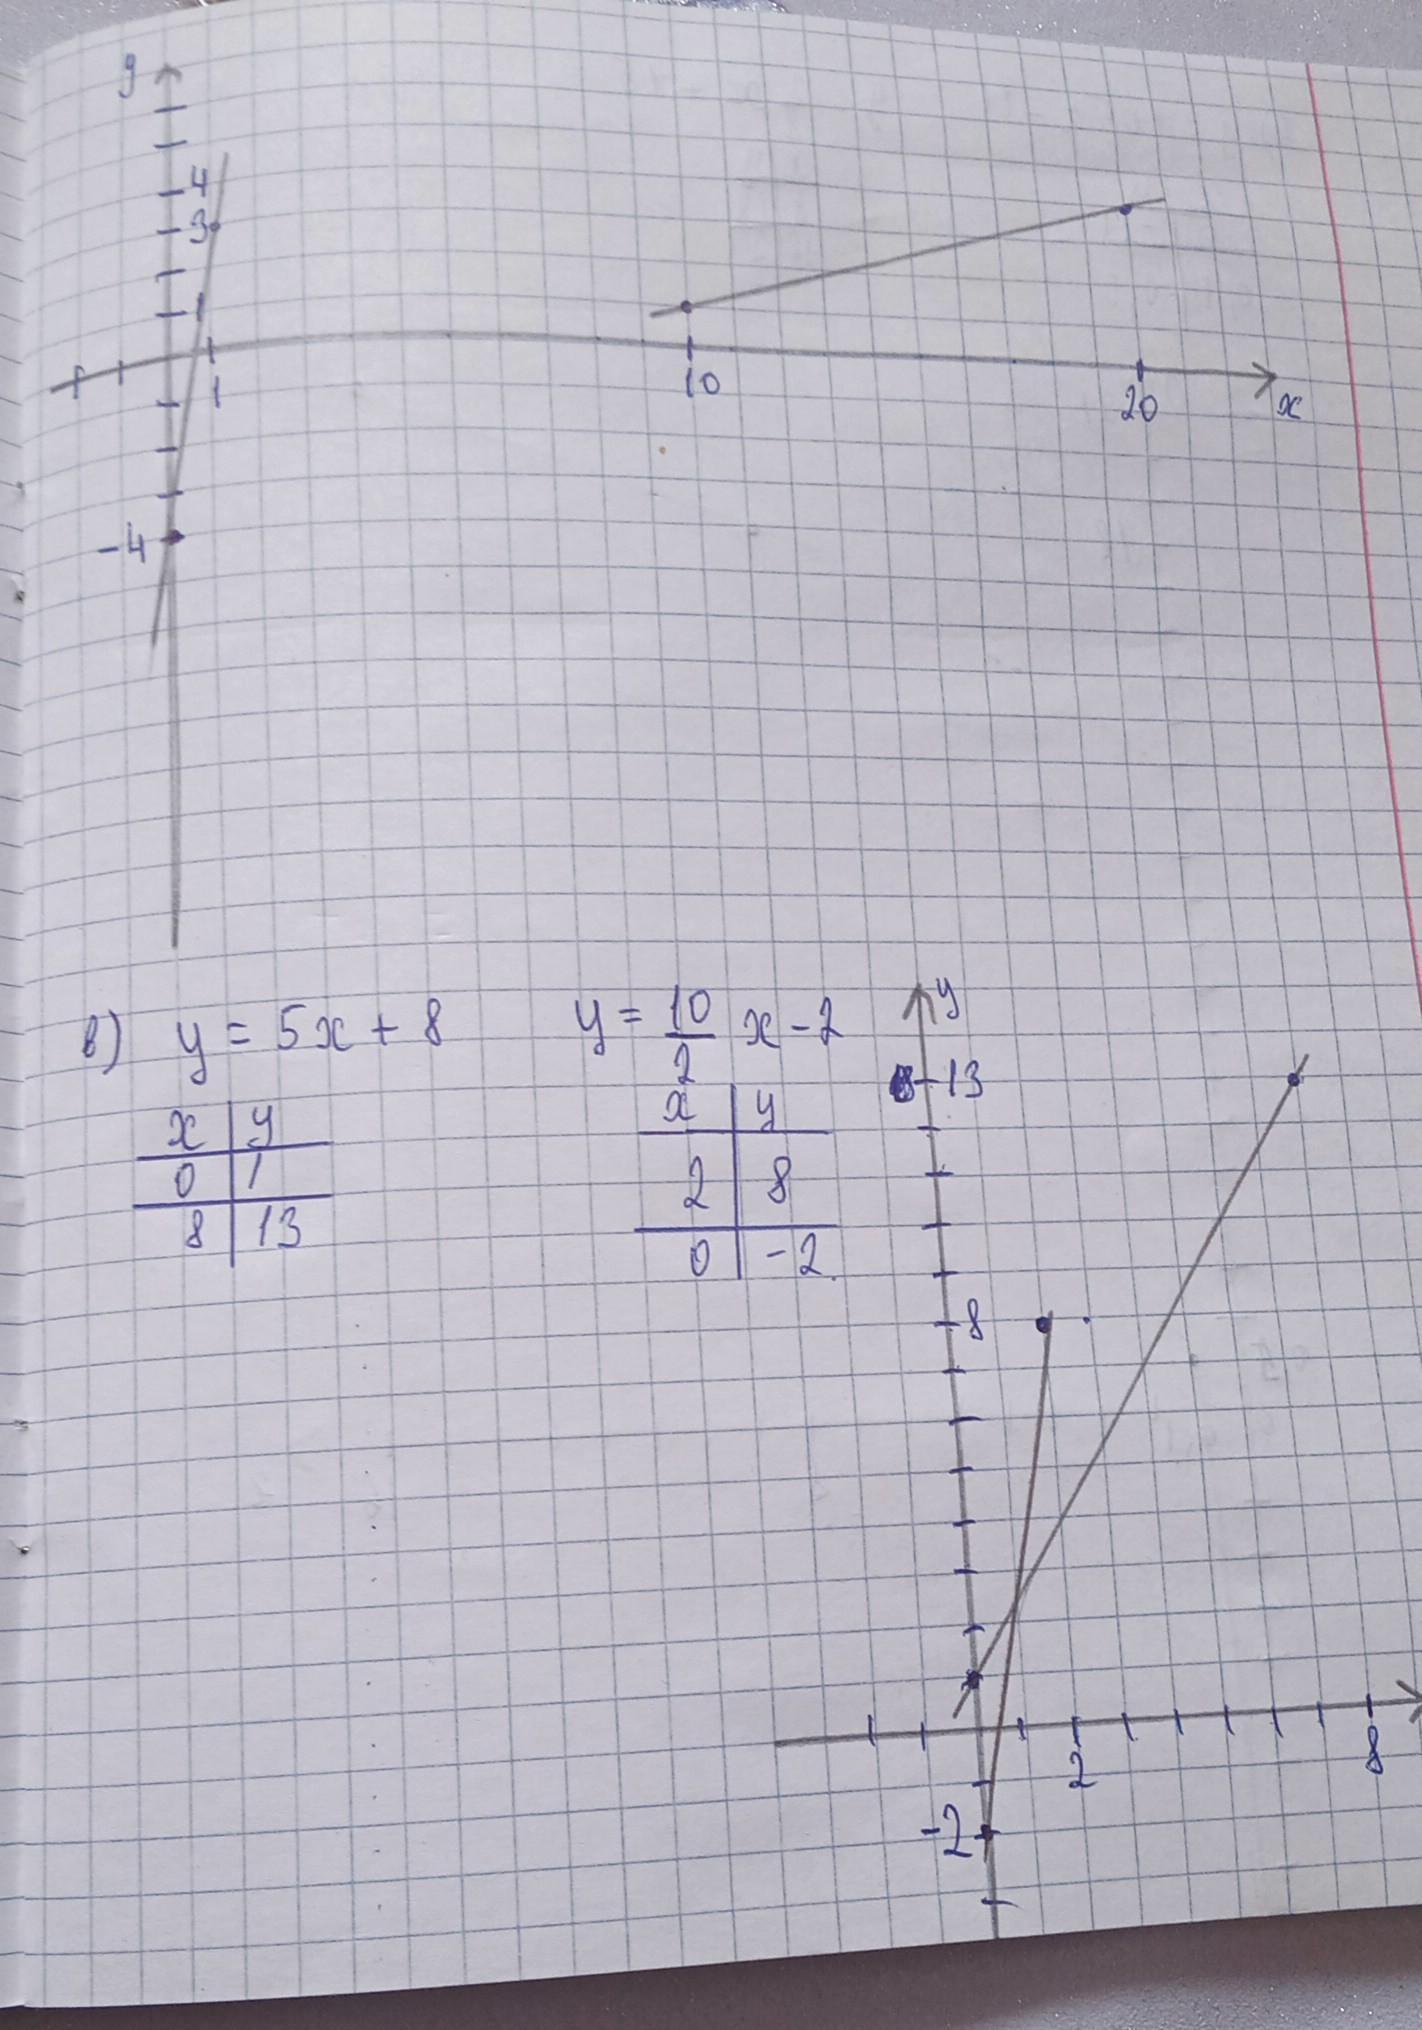 y
4
3
1
1 10 20 x
-4
в) y = 5x + 8 y = 10/2 x - 2
x | y x | y
0 | 1 2 | 8
8 | 13 0 | -2
y
13
8
2 8
-2